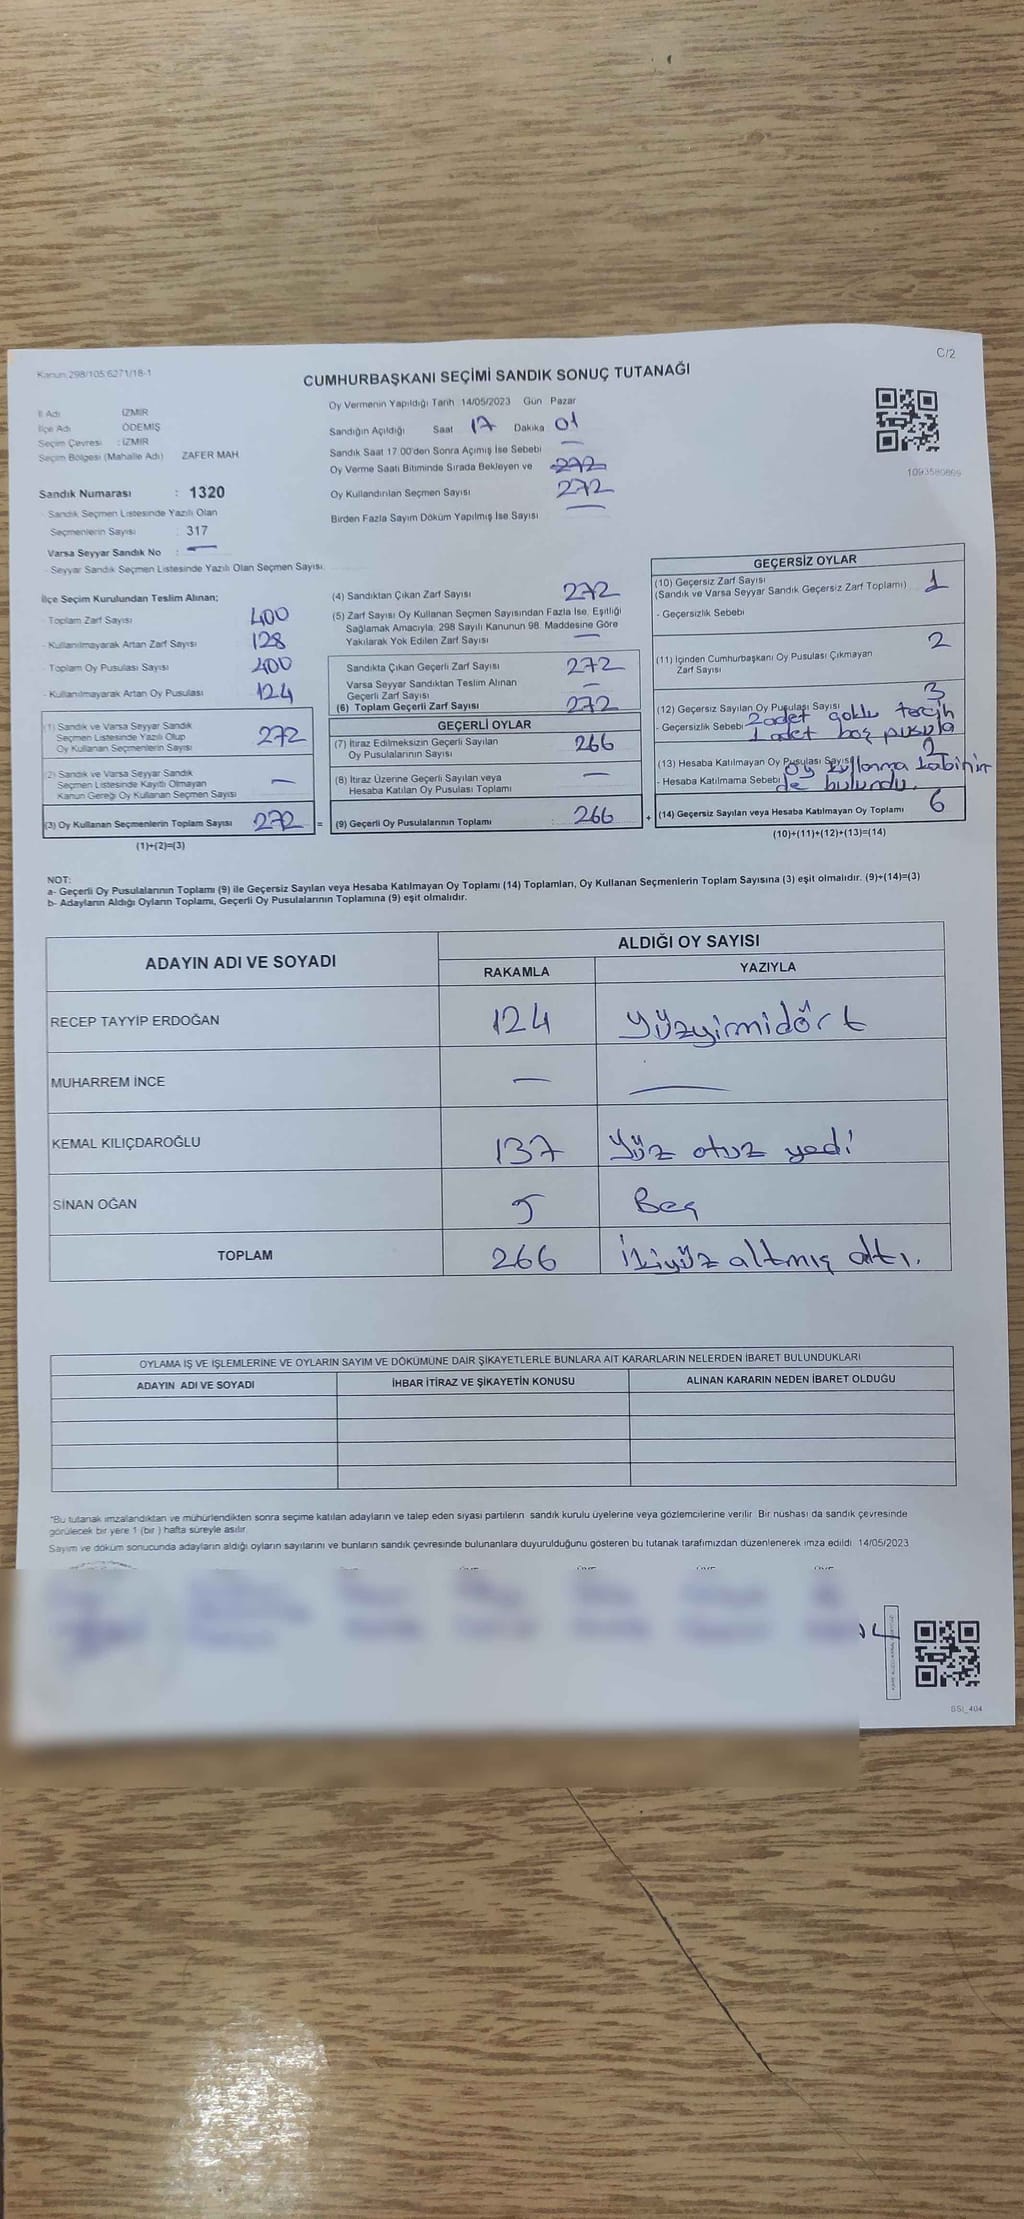 C/2
Kanun:298/105:6271/18-1
CUMHURBAŞKANI SEÇİMİ SANDIK SONUÇ TUTANAĞI
İl Adı İZMİR
İlçe Adı ÖDEMİŞ
Seçim Çevresi : İZMİR
Seçim Bölgesi (Mahalle Adı) ZAFER MAH.
Oy Vermenin Yapıldığı Tarih 14/05/2023 Gün Pazar
Sandığın Açıldığı Saat 17 Dakika 01
Sandık Saat 17.00'den Sonra Açılmış İse Sebebi —
Oy Verme Saati Bitiminde Sırada Bekleyen ve 272
Oy Kullandırılan Seçmen Sayısı 272
Birden Fazla Sayım Döküm Yapılmış İse Sayısı —
1093580869
Sandık Numarası : 1320
- Sandık Seçmen Listesinde Yazılı Olan
Seçmenlerin Sayısı : 317
Varsa Seyyar Sandık No : —
- Seyyar Sandık Seçmen Listesinde Yazılı Olan Seçmen Sayısı
İlçe Seçim Kurulundan Teslim Alınan;
- Toplam Zarf Sayısı 400
- Kullanılmayarak Artan Zarf Sayısı 128
- Toplam Oy Pusulası Sayısı 400
- Kullanılmayarak Artan Oy Pusulası 124
(1) Sandık ve Varsa Seyyar Sandık
Seçmen Listesinde Yazılı Olup
Oy Kullanan Seçmenlerin Sayısı 272
(2) Sandık ve Varsa Seyyar Sandık
Seçmen Listesinde Kayıtlı Olmayan
Kanun Gereği Oy Kullanan Seçmen Sayısı —
(3) Oy Kullanan Seçmenlerin Toplam Sayısı 272 =
(1)+(2)=(3)
(4) Sandıktan Çıkan Zarf Sayısı 272
(5) Zarf Sayısı Oy Kullanan Seçmen Sayısından Fazla İse, Eşitliği
Sağlamak Amacıyla, 298 Sayılı Kanunun 98. Maddesine Göre
Yakılarak Yok Edilen Zarf Sayısı —
Sandıkta Çıkan Geçerli Zarf Sayısı 272
Varsa Seyyar Sandıktan Teslim Alınan
Geçerli Zarf Sayısı —
(6) Toplam Geçerli Zarf Sayısı 272
GEÇERLİ OYLAR
(7) İtiraz Edilmeksizin Geçerli Sayılan
Oy Pusulalarının Sayısı 266
(8) İtiraz Üzerine Geçerli Sayılan veya
Hesaba Katılan Oy Pusulası Toplamı —
(9) Geçerli Oy Pusulalarının Toplamı : 266 +
GEÇERSİZ OYLAR
(10) Geçersiz Zarf Sayısı
(Sandık ve Varsa Seyyar Sandık Geçersiz Zarf Toplamı) 1
- Geçersizlik Sebebi
(11) İçinden Cumhurbaşkanı Oy Pusulası Çıkmayan
Zarf Sayısı 2
(12) Geçersiz Sayılan Oy Pusulası Sayısı 3
- Geçersizlik Sebebi 2 adet çoklu tercih
1 adet boş pusula
(13) Hesaba Katılmayan Oy Pusulası Sayısı
- Hesaba Katılmama Sebebi Oy kullanma kabinin
de bulundu.
(14) Geçersiz Sayılan veya Hesaba Katılmayan Oy Toplamı 6
(10)+(11)+(12)+(13)=(14)
NOT:
a- Geçerli Oy Pusulalarının Toplamı (9) ile Geçersiz Sayılan veya Hesaba Katılmayan Oy Toplamı (14) Toplamları, Oy Kullanan Seçmenlerin Toplam Sayısına (3) eşit olmalıdır. (9)+(14)=(3)
b- Adayların Aldığı Oyların Toplamı, Geçerli Oy Pusulalarının Toplamına (9) eşit olmalıdır.
ADAYIN ADI VE SOYADI
ALDIĞI OY SAYISI
RAKAMLA YAZIYLA
RECEP TAYYİP ERDOĞAN 124 Yüzyirmidört
MUHARREM İNCE — —
KEMAL KILIÇDAROĞLU 137 Yüz otuz yedi
SİNAN OĞAN 5 Beş
TOPLAM 266 İkiyüz altmış altı.
OYLAMA İŞ VE İŞLEMLERİNE VE OYLARIN SAYIM VE DÖKÜMÜNE DAİR ŞİKAYETLERLE BUNLARA AİT KARARLARIN NELERDEN İBARET BULUNDUKLARI
ADAYIN ADI VE SOYADI İHBAR İTİRAZ VE ŞİKAYETİN KONUSU ALINAN KARARIN NEDEN İBARET OLDUĞU
"Bu tutanak imzalandıktan ve mühürlendikten sonra seçime katılan adayların ve talep eden siyasi partilerin sandık kurulu üyelerine veya gözlemcilerine verilir. Bir nüshası da sandık çevresinde
görülecek bir yere 1 (bir ) hafta süreyle asılır.
Sayım ve döküm sonucunda adayların aldığı oyların sayılarını ve bunların sandık çevresinde bulunanlara duyurulduğunu gösteren bu tutanak tarafımızdan düzenlenerek imza edildi 14/05/2023
BSI_404